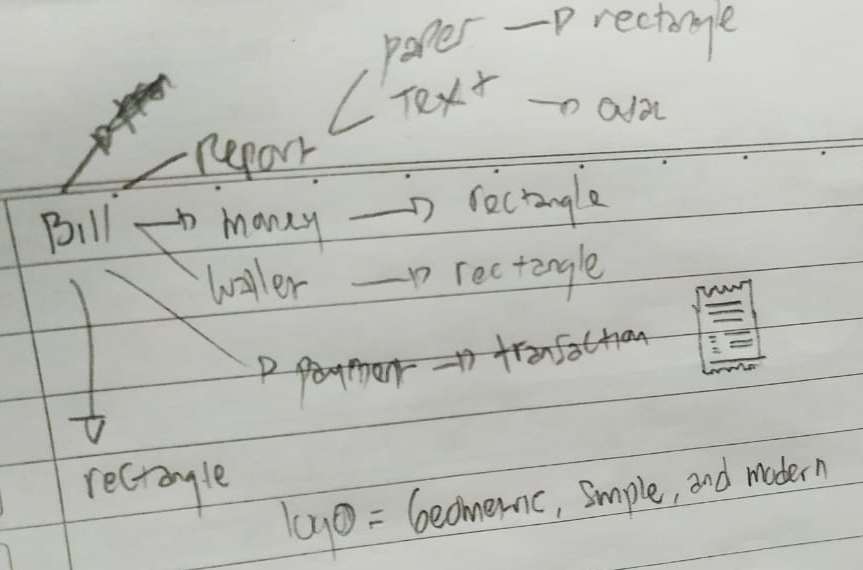 paper → rectangle
Text →
Report
Bill → money → rectangle
Wallet → rectangle
payment → transaction
rectangle
logo = Geometric, simple, and modern